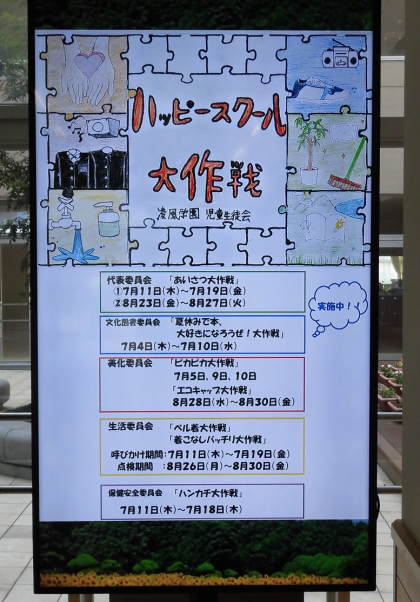 ハッピースクール
大作戦
凌風学園 児童生徒会
代表委員会 「あいさつ大作戦」
①7月11日(木)～7月19日(金)
②8月23日(金)～8月27日(火)
文化図書委員会 「夏休みで本、
大好きになろうぜ!大作戦」
7月4日(木)～7月10日(水)
美化委員会 「ピカピカ大作戦」
7月5日、9日、10日
「エコキャップ大作戦」
8月28日(水)～8月30日(金)
生活委員会 「ベル着大作戦」
「着こなしバッチリ大作戦」
呼びかけ期間:7月11日(木)～7月19日(金)
点検期間 :8月26日(月)～8月30日(金)
保健安全委員会 「ハンカチ大作戦」
7月11日(木)～7月18日(木)
実施中!!